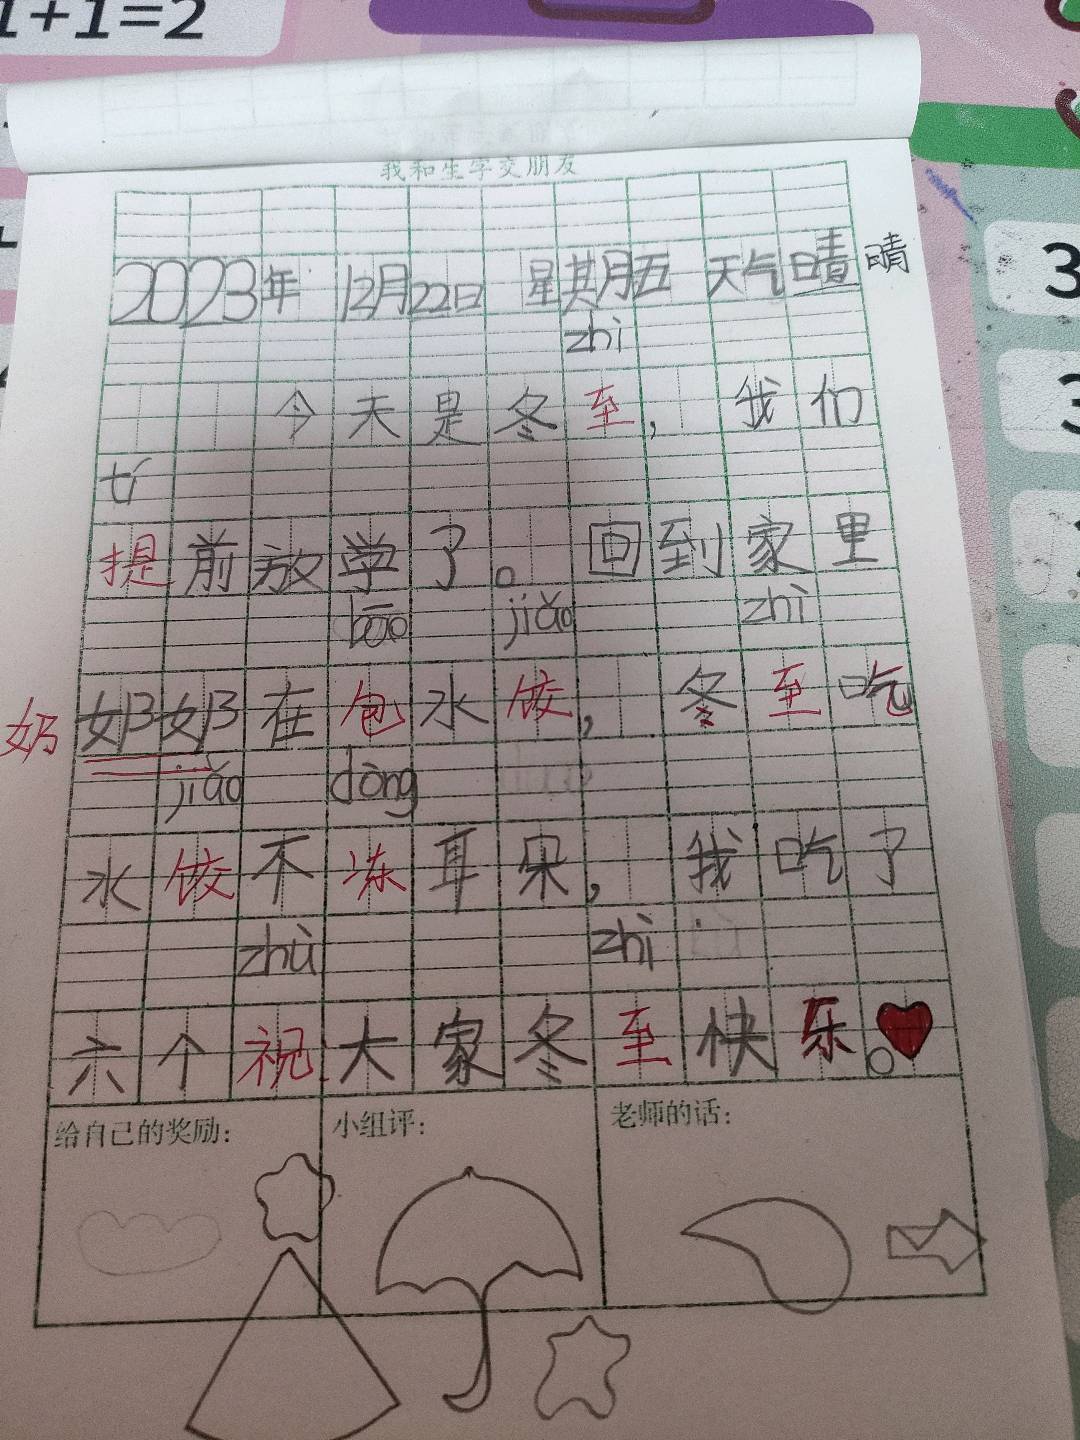 1+1=2
我和生字交朋友
2023年 12月22日 星期五 天气晴 晴
zhì
今天是冬至，我们
tí
提前放学了。回到家里
bāo jiǎo zhì
奶 奶奶在包水饺，冬至吃
jiǎo dòng
水饺不冻耳朵，我吃了
zhù zhì
六个祝大家冬至快乐。
给自己的奖励：
小组评：
老师的话：
3